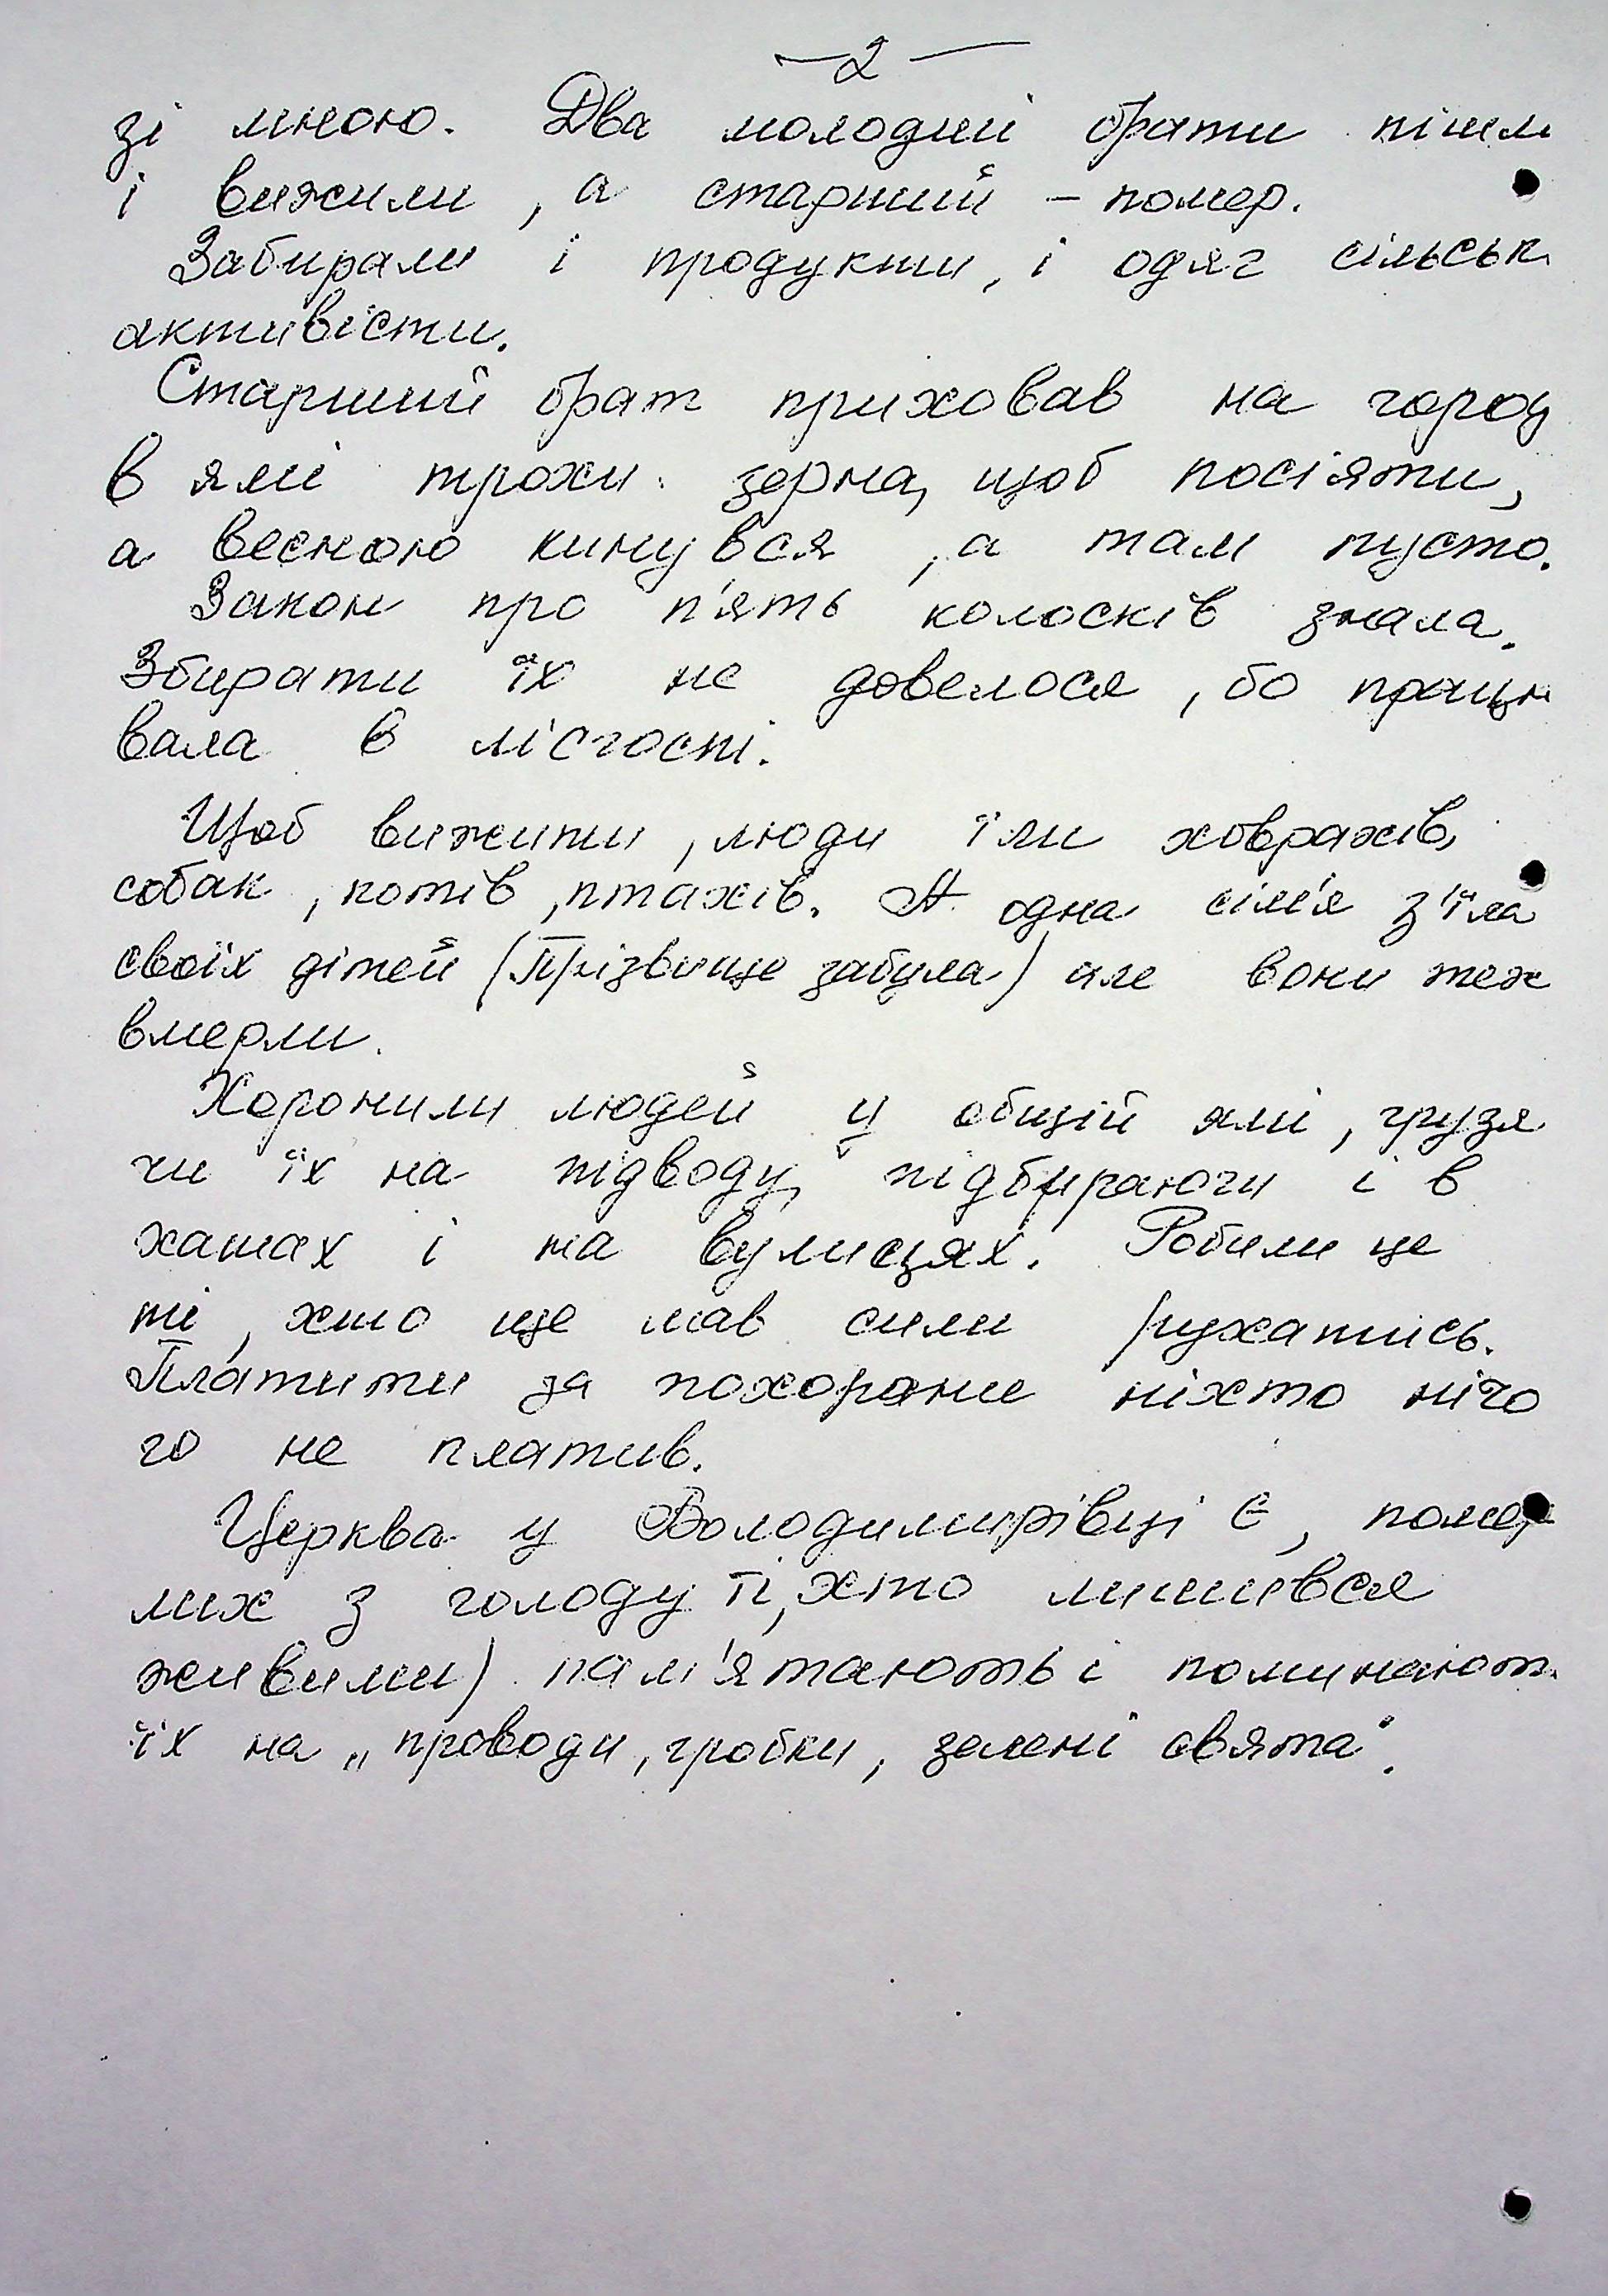 — 2 —
зі мною. Два молодші брати пішли
і вижили, а старший – помер.
Забирали і продукти, і одяг сільськ
активісти.
Старший брат приховав на город
в ямі трохи зерна, щоб посіяти,
а весною кинувся, а там пусто.
Закон про п'ять колосків знала.
Збирати їх не довелося, бо працю
вала в лісгоспі.
Щоб вижити, люди їли ховрахів,
собак, котів, птахів. А одна сім'я з'їла
своїх дітей (Прізвище забула) але вони теж
вмерли.
Хоронили людей у общій ямі, грузя
чи їх на підводу, підбираючи і в
хатах і на вулицях. Робили це
ті, хто ще мав сили рухатись.
Платити за похорони ніхто нічо
го не платив.
Церква у Володимирівці є, помер
лих з голоду ті, хто лишився
живими) пам'ятають і поминають
їх на „проводи, гробки, зелені свята".